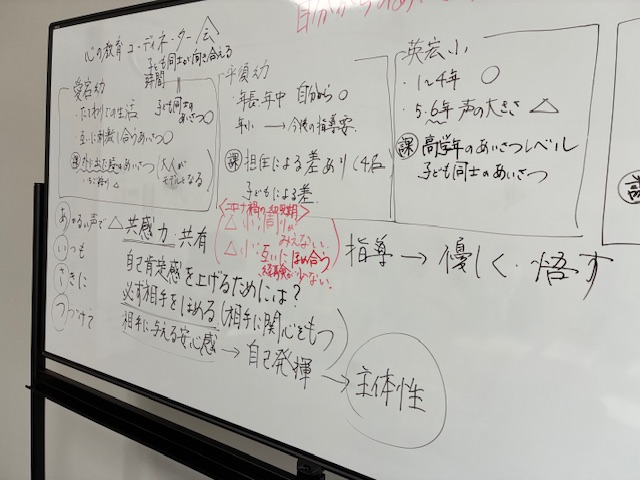 心の教育コーディネーター会
子ども同士が向き合える
時間
愛宕幼
・たてわりでの生活
子ども同士の
あいさつ○
・互いに刺激し合うあいさつ○
課 外に出た時のあいさつ
(大人が
モデルとなる
平須幼
・年長・年中 自分から○
年小 → 今後の指導要
課 担任による差あり(4名
子どもによる差
英宏小
・1〜4年 ○
・5・6年 声の大きさ △
課 高学年のあいさつレベル
子ども同士のあいさつ
あかるい声で△
いつも
さきに
つづけて
共感力・共有
<コロナ禍の幼児期>
△小:周りが
みえない。
△小:互いにほめ合う
経験が少ない。
指導 → 優しく・悟す
自己肯定感を上げるためには?
必ず相手をほめる(相手に関心をもつ)
相手に与える安心感 → 自己発揮 → 主体性